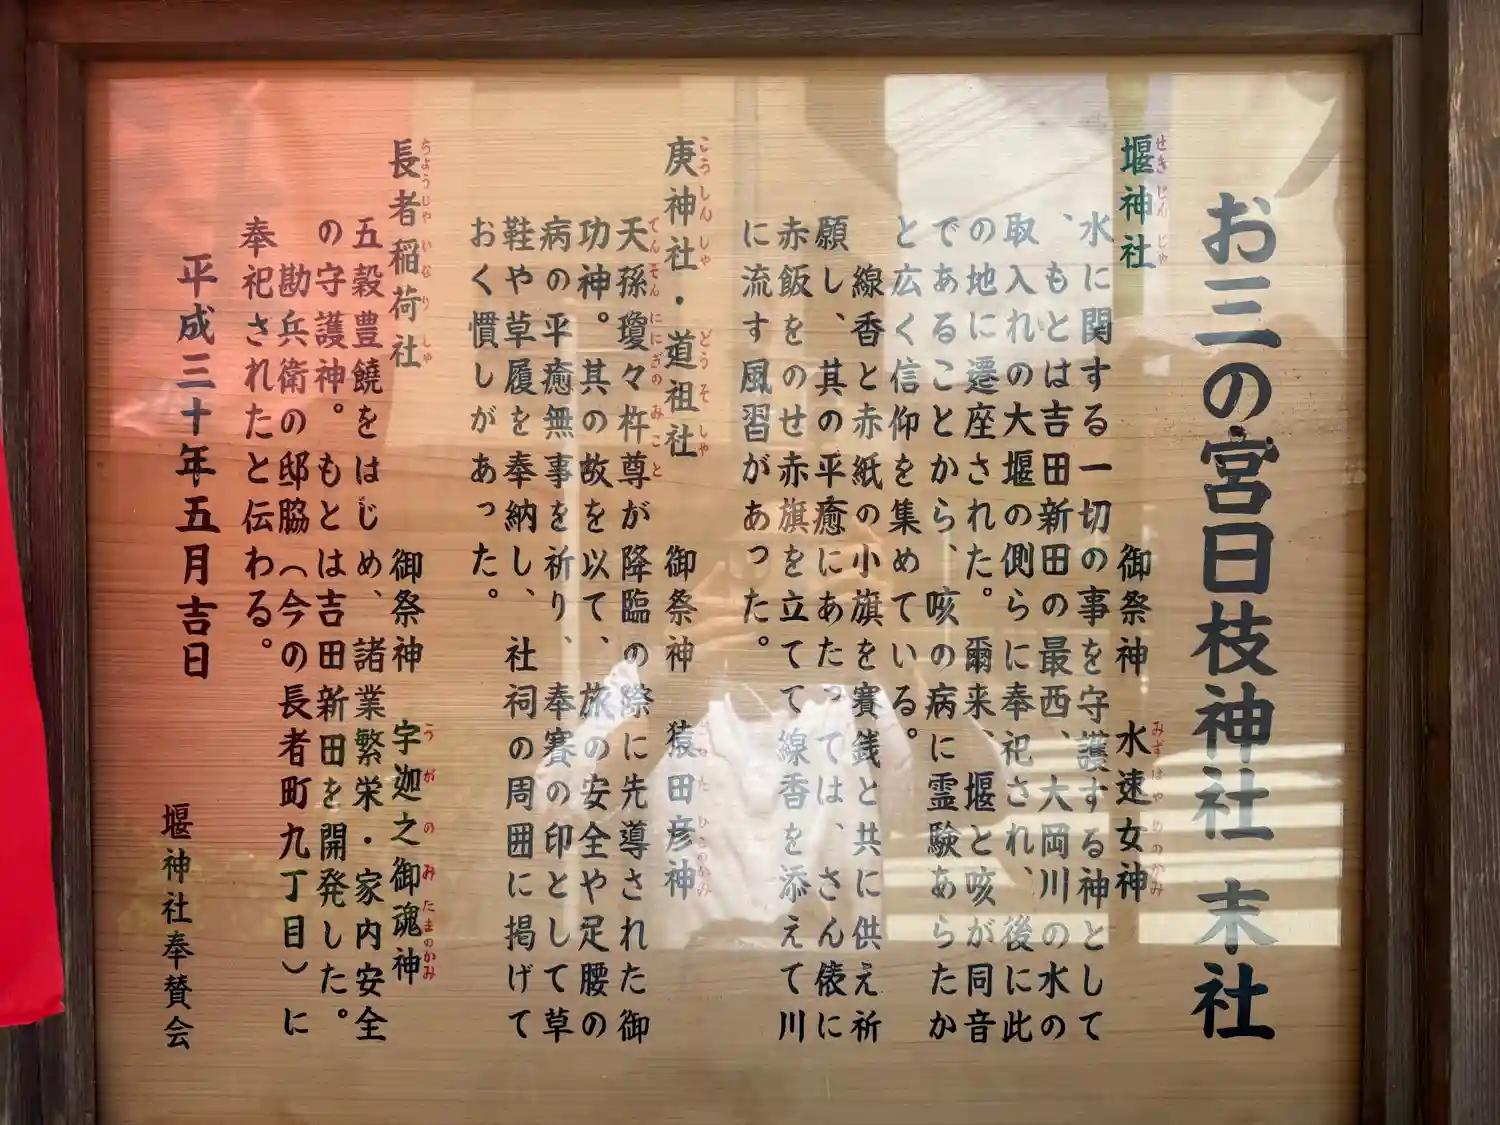 お三の宮日枝神社 末社
堰神社 御祭神 水速女神
せき じん じゃ みずはやめのかみ
水に関する一切の事を守護する神として
、もとは吉田新田の最西、大岡川の水の
取入れの大堰の側らに奉祀され、後に此
の地に遷座された。爾来、堰と咳が同音
であることから、咳の病に霊験あらたか
と広く信仰を集めている。
線香と赤紙の小旗を賽銭と共に供え祈
願し、其の平癒にあたっては、さん俵に
赤飯をのせ赤旗を立てて線香を添えて川
に流す風習があった。
庚神社・道祖社 御祭神 猿田彦神
こうしんしゃ どうそしゃ さるたひこのかみ
天孫瓊々杵尊が降臨の際に先導された御
てんそんににぎのみこと
功神。其の故を以て、旅の安全や足腰の
病の平癒無事を祈り、奉賽の印として草
鞋や草履を奉納し、社祠の周囲に掲げて
おく慣しがあった。
長者稲荷社 御祭神 宇迦之御魂神
ちょうじゃいなりしゃ うがのみたまのかみ
五穀豊饒をはじめ、諸業繁栄・家内安全
の守護神。もとは吉田新田を開発した。
勘兵衛の邸脇（今の長者町九丁目）に
奉祀されたと伝わる。
平成三十年五月吉日
堰神社奉賛会